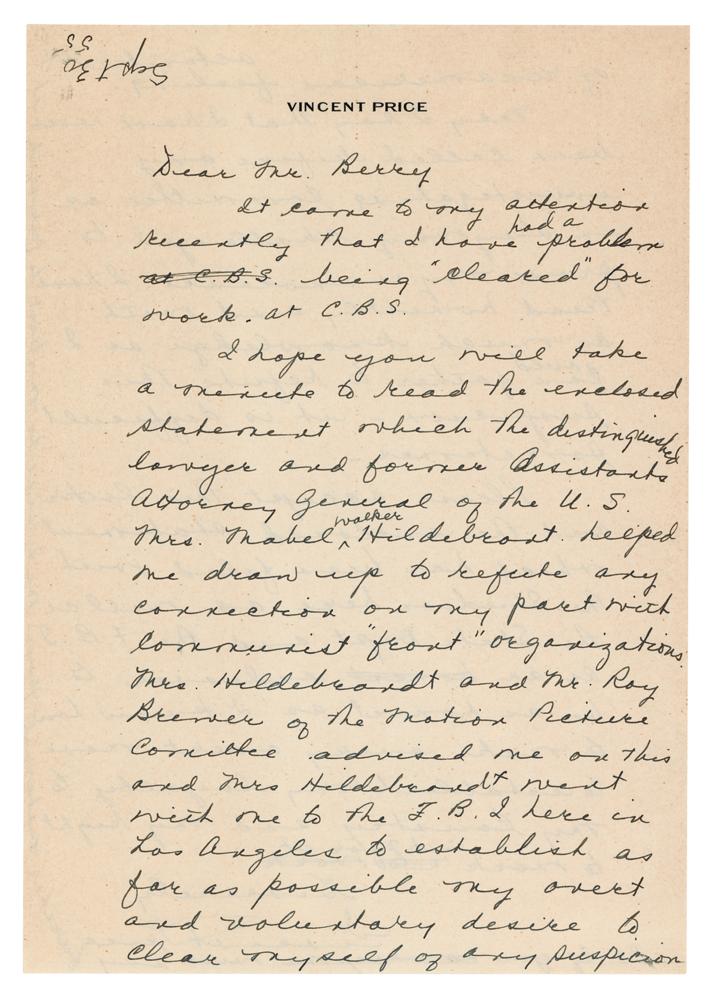 Sept 30
55
VINCENT PRICE
Dear Mr. Berry
It came to my attention
recently that I have had a problem
at C.B.S. being "cleared" for
work. at C.B.S.
I hope you will take
a minute to read the enclosed
statement which the distinguished
lawyer and former Assistants
Attorney General of the U.S.
Mrs. Mabel walker Hildebrant. helped
me draw up to refute any
connection on my part with
Communist "front" organizations.
Mrs. Hildebrandt and Mr. Roy
Brewer of the Motion Picture
Comittee advised me on this
and Mrs Hildebrandt went
with me to the F.B.I here in
Los Angeles to establish as
far as possible my overt
and voluntary desire to
clear myself of any suspicion